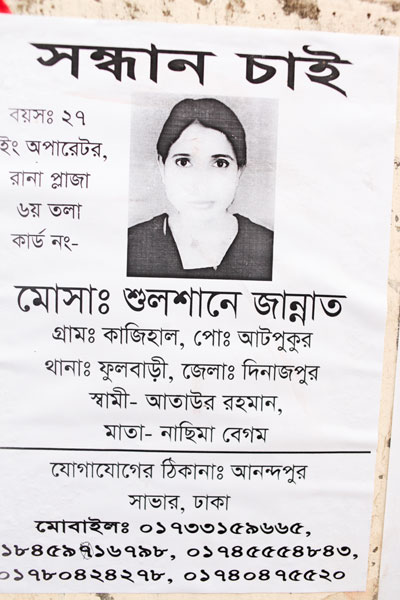 সন্ধান চাই
বয়সঃ ২৭
ইং অপারেটর,
রানা প্লাজা
৬য় তলা
কার্ড নং-
মোসাঃ শুলশানে জান্নাত
গ্রামঃ কাজিহাল, পোঃ আটপুকুর
থানাঃ ফুলবাড়ী, জেলাঃ দিনাজপুর
স্বামী- আতাউর রহমান,
মাতা- নাছিমা বেগম
যোগাযোগের ঠিকানাঃ আনন্দপুর
সাভার, ঢাকা
মোবাইলঃ ০১৭৩৩১৫৯৬৬৫,
১৮৪৫৯৭১৬৭৯৮, ০১৭৪৫৫৫৪৮৪৩,
০১৭৮০৪২৪২৭৮, ০১৭৪০৪৭৫৫২০